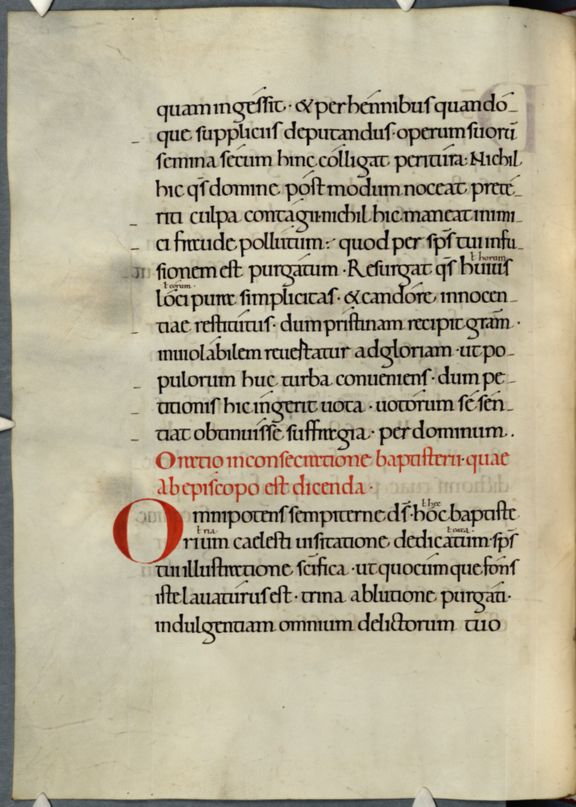 quam ingessit · & perhennibus quando
que suppliciis deputandus · operum suorū
semina secum hinc colligat peritura · Nichil
hic qs̄ domine postmodum noceat prete
riti culpa contagii · nichil hic maneat inimi
ci fraude pollutum · quod per sp̄s tui infu
sionem est purgatum · Resurgat qs̄ huius
ł horum
loci pure simplicitas · & candore innocen
ł eorum
tiae restitutus · dum pristinam recipit grām ·
inuiolabilem reuestatur ad gloriam · ut po
pulorum huc turba conueniens · dum pe
titionis hic ingerit uota · uotorum se sen
tiat obtinuisse suffragia · per dominum ·
Oratio in consecratione baptisterii · quae
ab episcopo est dicenda ·
Omnipotens sempiterne d̄s · hoc baptiste
ł hec
rium caelesti uisitatione dedicatum · sp̄s
ł ria
tui illustratione sc̄ifica · ut quocumque fons
iste lauaturus est · trina ablutione purgati ·
indulgentiam omnium delictorum tuo